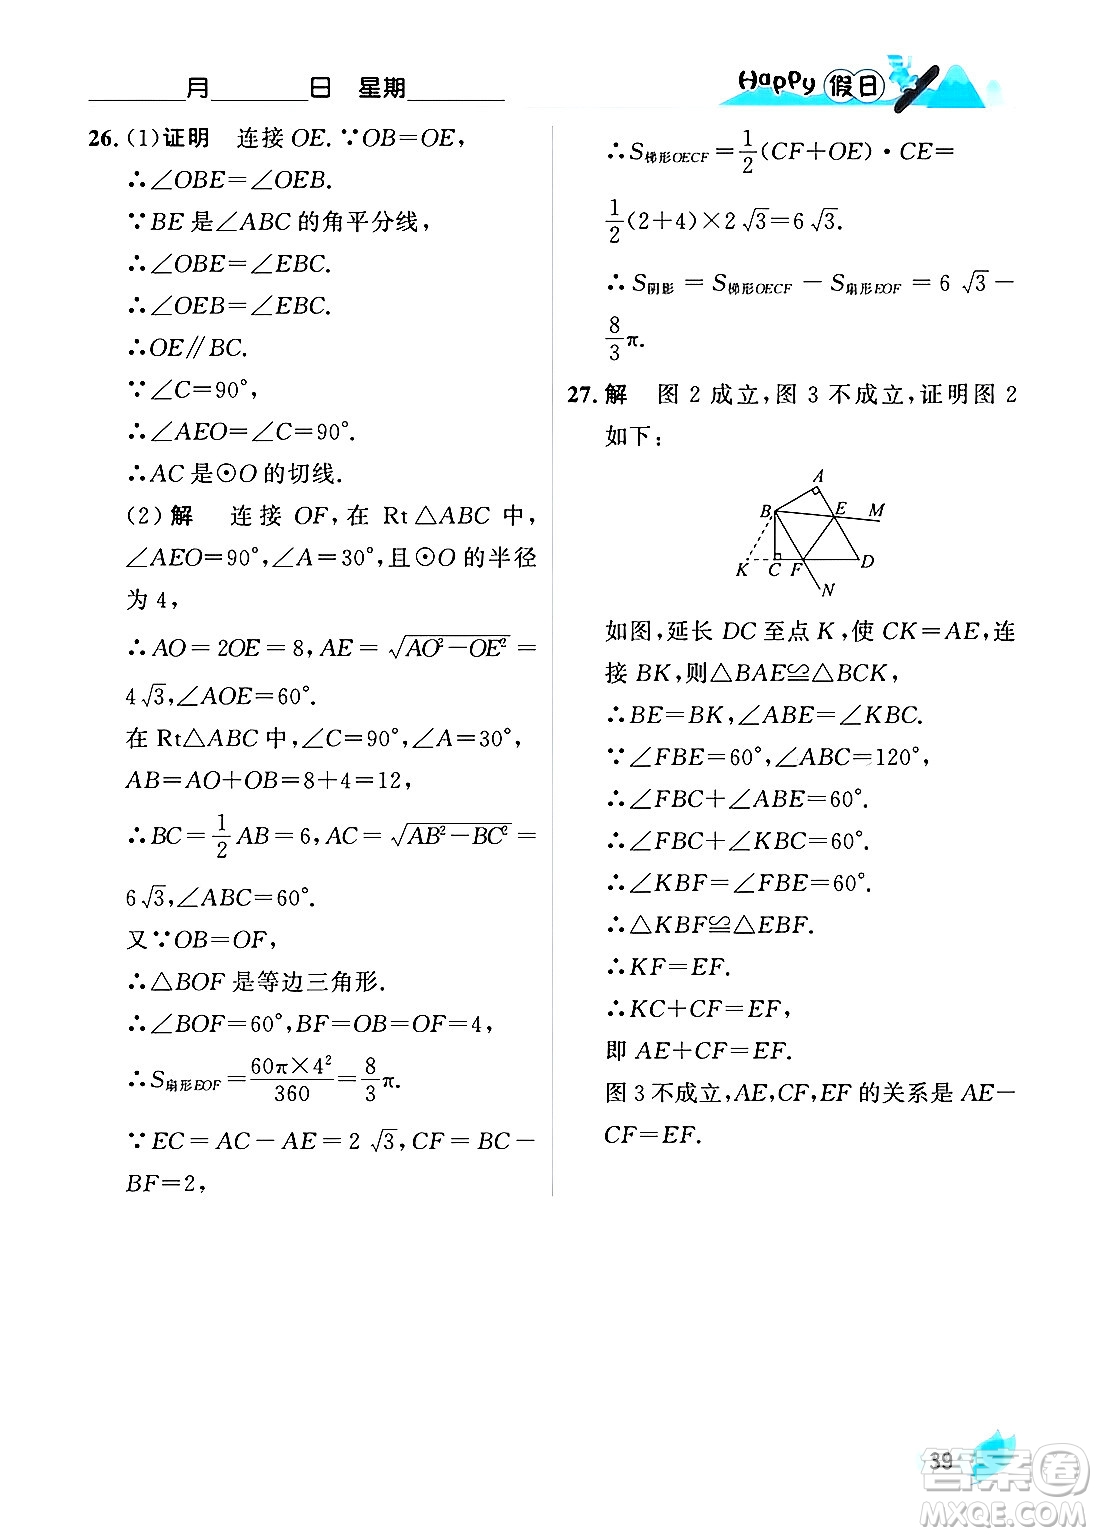 月 日 星期
Happy 假日
26. (1)证明 连接 OE. ∵OB=OE,
∴∠OBE=∠OEB.
∵BE 是∠ABC 的角平分线,
∴∠OBE=∠EBC.
∴∠OEB=∠EBC.
∴OE∥BC.
∵∠C=90°,
∴∠AEO=∠C=90°.
∴AC 是⊙O 的切线.
(2) 解 连接 OF, 在 Rt△ABC 中,
∠AEO=90°,∠A=30°,且⊙O 的半径
为 4,
∴AO=2OE=8,AE=√(AO²−OE²)=
4√3,∠AOE=60°.
在 Rt△ABC 中,∠C=90°,∠A=30°,
AB=AO+OB=8+4=12,
∴BC=1/2 AB=6,AC=√(AB²−BC²)=
6√3,∠ABC=60°.
又∵OB=OF,
∴△BOF 是等边三角形.
∴∠BOF=60°,BF=OB=OF=4,
∴S扇形EOF=60π×4²/360=8/3π.
∵EC=AC−AE=2√3,CF=BC−
BF=2,
∴S梯形OECF=1/2(CF+OE)·CE=
1/2(2+4)×2√3=6√3.
∴S阴影=S梯形OECF−S扇形EOF=6√3−
8/3π.
27. 解 图 2 成立,图 3 不成立,证明图 2
如下:
A
B E M
K C F D
N
如图,延长 DC 至点 K,使 CK=AE,连
接 BK,则△BAE≌△BCK,
∴BE=BK,∠ABE=∠KBC.
∵∠FBE=60°,∠ABC=120°,
∴∠FBC+∠ABE=60°.
∴∠FBC+∠KBC=60°.
∴∠KBF=∠FBE=60°.
∴△KBF≌△EBF.
∴KF=EF.
∴KC+CF=EF,
即 AE+CF=EF.
图 3 不成立,AE,CF,EF 的关系是 AE−
CF=EF.
39
答案卷
MXQE.COM